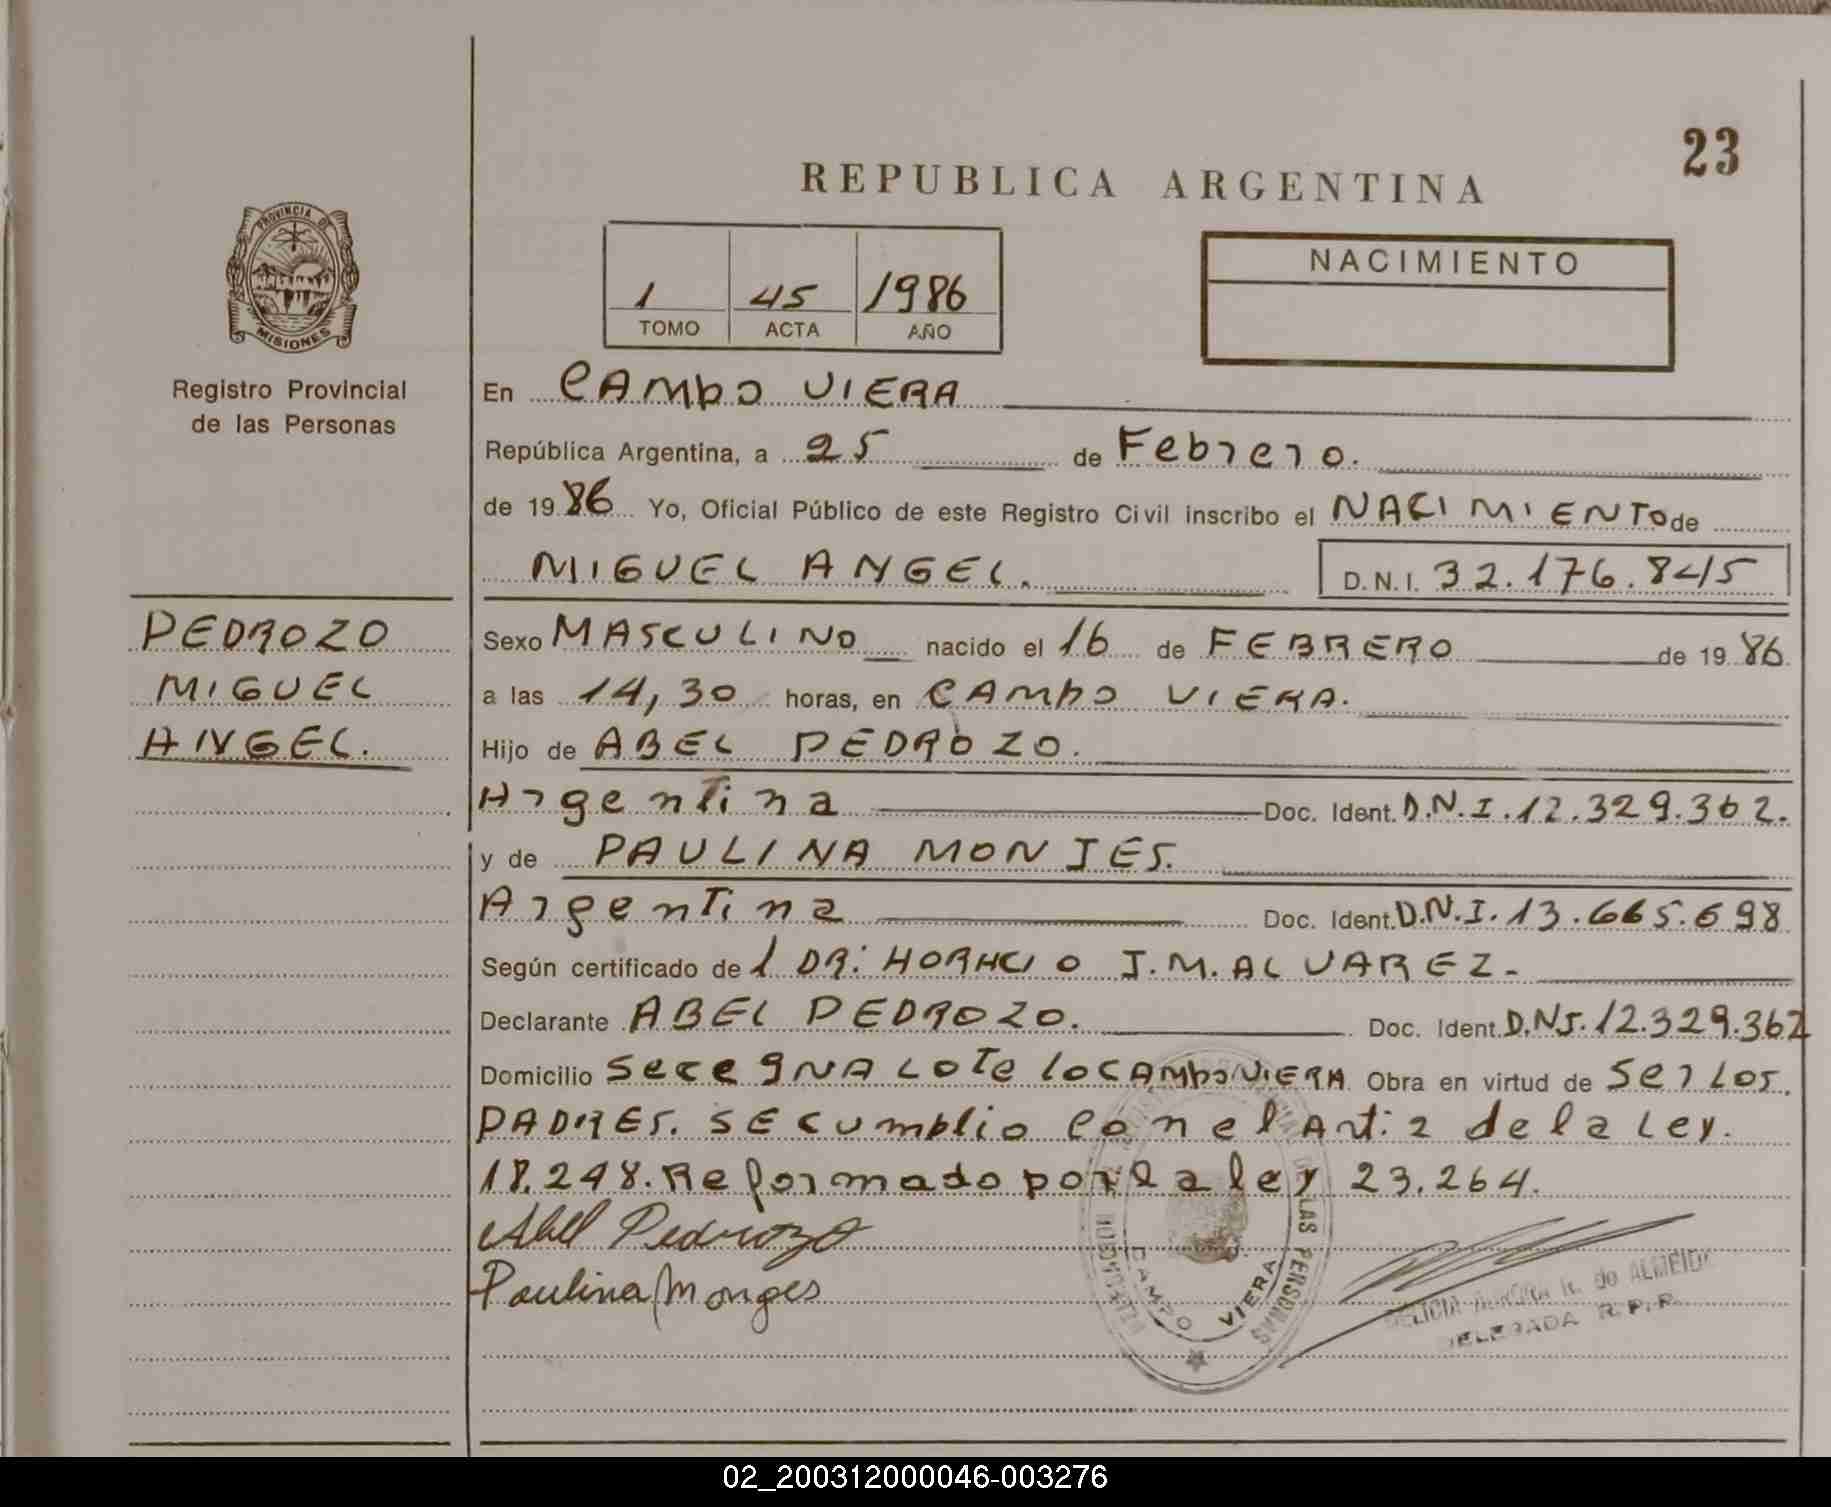 23
REPUBLICA ARGENTINA
PROVINCIA DE
MISIONES
Registro Provincial
de las Personas
1 45 1986
TOMO ACTA AÑO
NACIMIENTO
En CAMPO VIERA
República Argentina, a 25 de Febrero.
de 1986 Yo, Oficial Público de este Registro Civil inscribo el NACIMIENTO de
MIGUEL ANGEL. D.N.I. 32.176.845
PEDROZO
MIGUEL
ANGEL.
Sexo MASCULINO nacido el 16 de FEBRERO de 1986
a las 14,30 horas, en CAMPO VIERA.
Hijo de ABEL PEDROZO.
Argentina Doc. Ident. D.N.I. 12.329.362.
y de PAULINA MONJES.
Argentina Doc. Ident. D.N.I. 13.665.698
Según certificado de l DR: HORACIO J.M. ALVAREZ.-
Declarante ABEL PEDROZO. Doc. Ident. D.N.I. 12.329.362
Domicilio LOTE CAMPO VIERA Obra en virtud de SER LOS
PADRES. SE CUMPLIO CON el Art: 2 de la Ley.
18.248. Reformado por la ley 23.264.
Abel Pedrozo
Paulina Monges
LAS PERSONAS
CAMPO VIERA
de ALMEIDA
DELEGADA R.P.P.
02_200312000046-003276